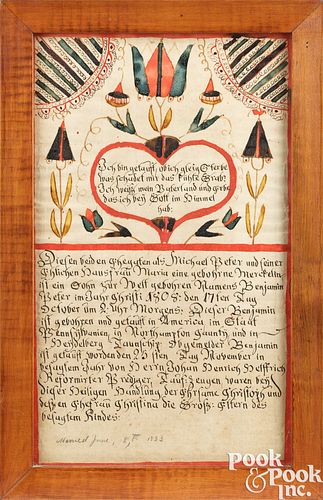 Ich bin getauft, ob ich gleich Sterbe
was schadet mir das kühle Grab!
Ich weiß mein Vaterland und Erbe
das ich bey Gott im Himmel
hab:
Diesen beiden Eheggten als Michael Peter und seiner
Ehlichen Hausfrau Maria eine gebohrne Merckelin,
ist ein Sohn zur Welt gebohren Namens Benjamin
Peter im Jahr Christi 1808: den 17ten Tag
October um 2 Uhr Morgens: Dieser Benjamin
ist gebohren und getauft in America im Staat
Pennsylvanien, in Northamton Caunty und in
Heidelberg Taunschip: Obgemelder Benjamin
ist getauft worden den 26sten Tag November in
besagtem Jahr von Herrn Johan Henrich Hoffmeir
Reformirter Prediger, Taufzeugen waren bey
dieser Heiligen Handlung der Ehrsame Christoph und
deßen Ehefrau Christina die Groß: Eltern des
besagten Kindes:
Married June, 1833
POOK &
POOK
Inc.